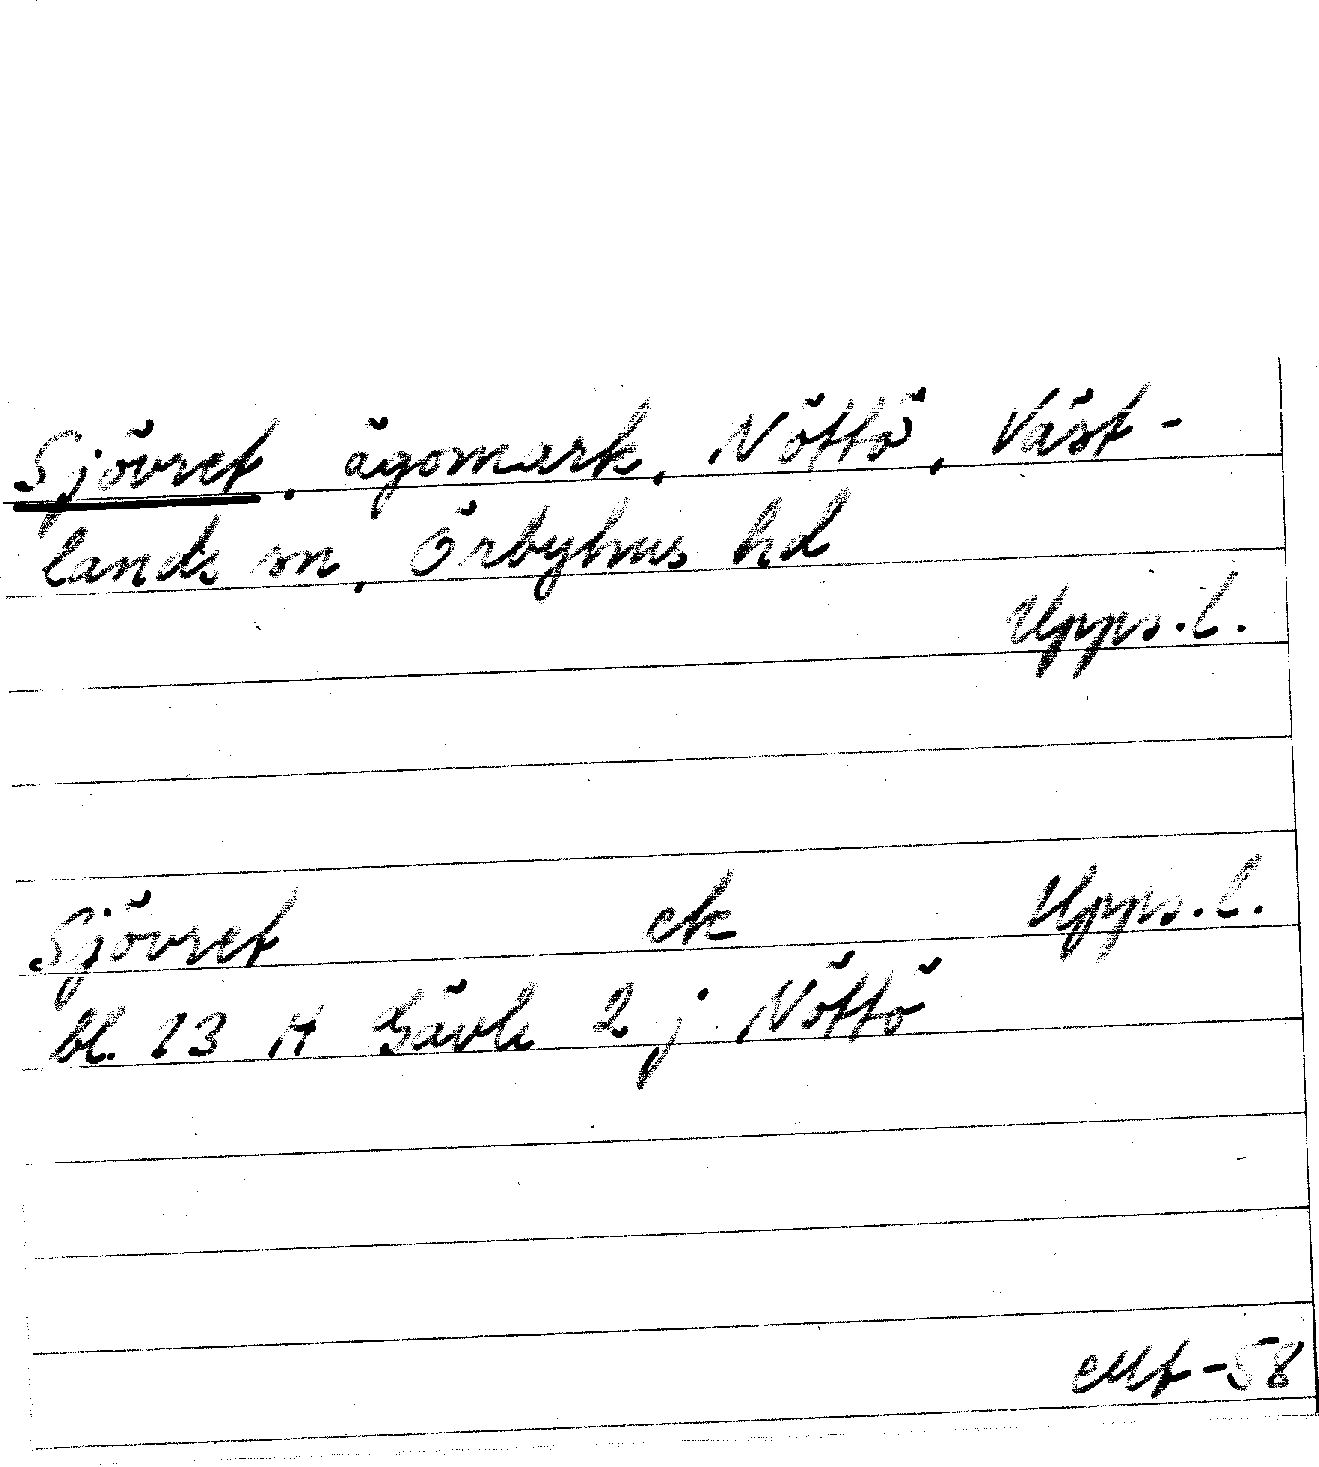 Sjövret, ägomark, Nöttö, Väst-
lands sn, Örbyhus hd
Upps.l.
Sjövret ek Upps.l.
bl. 13 H Gävle 2 j Nöttö
-58